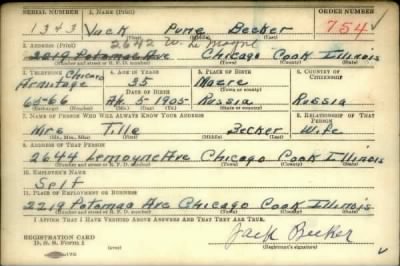 SERIAL NUMBER 1. NAME (Print) ORDER NUMBER
1343 Jack Becker 754
(First) (Middle) (Last)
2642 W. Le Moyne
2. ADDRESS (Print)
2219 Potomac Ave Chicago Cook Illinois
(Number and street or R. F. D. number) (Town) (County) (State)
3. TELEPHONE 4. AGE IN YEARS 5. PLACE OF BIRTH 6. COUNTRY OF CITIZENSHIP
Chicago
Armitage 35
DATE OF BIRTH
65-66 5-1905 Russia Russia
(Exchange) (Number) (Mo.) (Day) (Yr.) (State or country)
7. NAME OF PERSON WHO WILL ALWAYS KNOW YOUR ADDRESS 8. RELATIONSHIP OF THAT PERSON
Mrs Tille Becker Wife
(Mr., Mrs., Miss) (First) (Middle) (Last)
9. ADDRESS OF THAT PERSON
2644 Lemoyne Ave Chicago Cook Illinois
(Number and street or R. F. D. number) (Town) (County) (State)
10. EMPLOYER'S NAME
Self
11. PLACE OF EMPLOYMENT OR BUSINESS
2219 Potomac Ave Chicago Cook Illinois
(Number and street or R. F. D. number) (Town) (County) (State)
I AFFIRM THAT I HAVE VERIFIED ABOVE ANSWERS AND THAT THEY ARE TRUE.
REGISTRATION CARD
D. S. S. Form 1
Jack Becker
(Registrant's signature)